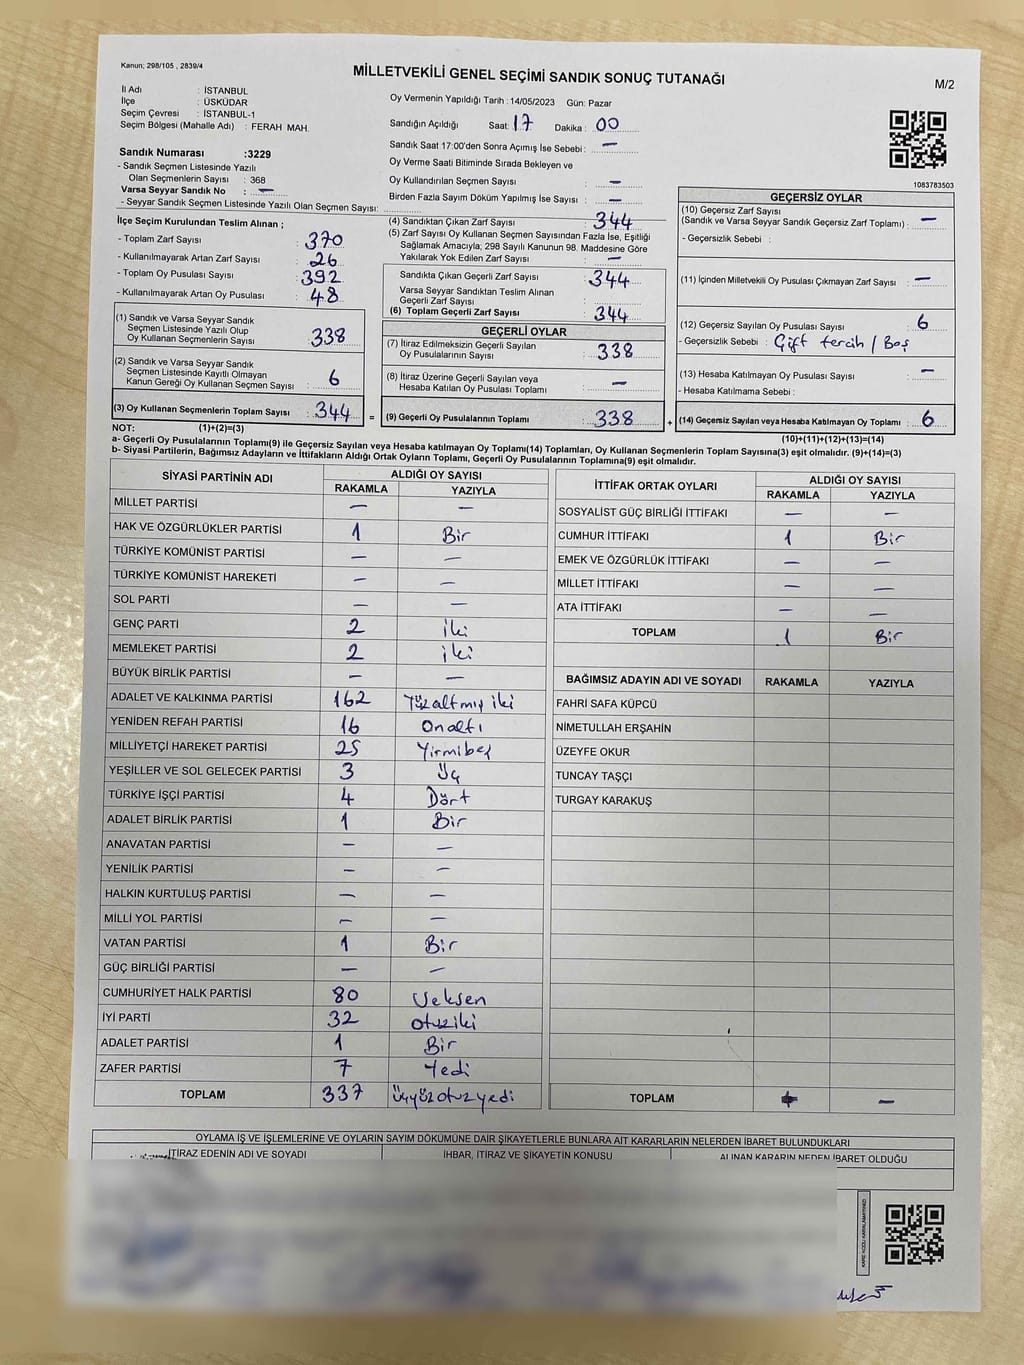 Kanun; 298/105 , 2839/4
MİLLETVEKİLİ GENEL SEÇİMİ SANDIK SONUÇ TUTANAĞI
M/2
İl Adı : İSTANBUL
İlçe : ÜSKÜDAR
Seçim Çevresi : İSTANBUL-1
Seçim Bölgesi (Mahalle Adı) : FERAH MAH.
Sandık Numarası :3229
- Sandık Seçmen Listesinde Yazılı
Olan Seçmenlerin Sayısı : 368
Varsa Seyyar Sandık No : —
- Seyyar Sandık Seçmen Listesinde Yazılı Olan Seçmen Sayısı:
İlçe Seçim Kurulundan Teslim Alınan ;
- Toplam Zarf Sayısı : 370
- Kullanılmayarak Artan Zarf Sayısı : 26
- Toplam Oy Pusulası Sayısı : 392
- Kullanılmayarak Artan Oy Pusulası : 48
(1) Sandık ve Varsa Seyyar Sandık
Seçmen Listesinde Yazılı Olup
Oy Kullanan Seçmenlerin Sayısı : 338
(2) Sandık ve Varsa Seyyar Sandık
Seçmen Listesinde Kayıtlı Olmayan
Kanun Gereği Oy Kullanan Seçmen Sayısı : 6
(3) Oy Kullanan Seçmenlerin Toplam Sayısı : 344
(1)+(2)=(3)
Oy Vermenin Yapıldığı Tarih : 14/05/2023 Gün: Pazar
Sandığın Açıldığı Saat: 17 Dakika : 00
Sandık Saat 17:00'den Sonra Açımış İse Sebebi : —
Oy Verme Saati Bitiminde Sırada Bekleyen ve
Oy Kullandırılan Seçmen Sayısı : —
Birden Fazla Sayım Döküm Yapılmış İse Sayısı : —
(4) Sandıktan Çıkan Zarf Sayısı : 344
(5) Zarf Sayısı Oy Kullanan Seçmen Sayısından Fazla İse, Eşitliği
Sağlamak Amacıyla; 298 Sayılı Kanunun 98. Maddesine Göre
Yakılarak Yok Edilen Zarf Sayısı : —
Sandıkta Çıkan Geçerli Zarf Sayısı : 344
Varsa Seyyar Sandıktan Teslim Alınan
Geçerli Zarf Sayısı :
(6) Toplam Geçerli Zarf Sayısı : 344
GEÇERLİ OYLAR
(7) İtiraz Edilmeksizin Geçerli Sayılan
Oy Pusulalarının Sayısı : 338
(8) İtiraz Üzerine Geçerli Sayılan veya
Hesaba Katılan Oy Pusulası Toplamı : —
= (9) Geçerli Oy Pusulalarının Toplamı : 338
1083783503
GEÇERSİZ OYLAR
(10) Geçersiz Zarf Sayısı
(Sandık ve Varsa Seyyar Sandık Geçersiz Zarf Toplamı) : —
- Geçersizlik Sebebi :
(11) İçinden Milletvekili Oy Pusulası Çıkmayan Zarf Sayısı : —
(12) Geçersiz Sayılan Oy Pusulası Sayısı : 6
- Geçersizlik Sebebi : Çift tercih / Boş
(13) Hesaba Katılmayan Oy Pusulası Sayısı : —
- Hesaba Katılmama Sebebi :
+ (14) Geçersiz Sayılan veya Hesaba Katılmayan Oy Toplamı : 6
(10)+(11)+(12)+(13)=(14)
NOT:
a- Geçerli Oy Pusulalarının Toplamı(9) ile Geçersiz Sayılan veya Hesaba katılmayan Oy Toplamı(14) Toplamları, Oy Kullanan Seçmenlerin Toplam Sayısına(3) eşit olmalıdır. (9)+(14)=(3)
b- Siyasi Partilerin, Bağımsız Adayların ve İttifakların Aldığı Ortak Oyların Toplamı, Geçerli Oy Pusulalarının Toplamına(9) eşit olmalıdır.
SİYASİ PARTİNİN ADI ALDIĞI OY SAYISI
RAKAMLA YAZIYLA
MİLLET PARTİSİ — —
HAK VE ÖZGÜRLÜKLER PARTİSİ 1 Bir
TÜRKİYE KOMÜNİST PARTİSİ — —
TÜRKİYE KOMÜNİST HAREKETİ — —
SOL PARTİ — —
GENÇ PARTİ 2 iki
MEMLEKET PARTİSİ 2 iki
BÜYÜK BİRLİK PARTİSİ — —
ADALET VE KALKINMA PARTİSİ 162 Yüzaltmış iki
YENİDEN REFAH PARTİSİ 16 Onaltı
MİLLİYETÇİ HAREKET PARTİSİ 25 Yirmibeş
YEŞİLLER VE SOL GELECEK PARTİSİ 3 Üç
TÜRKİYE İŞÇİ PARTİSİ 4 Dört
ADALET BİRLİK PARTİSİ 1 Bir
ANAVATAN PARTİSİ — —
YENİLİK PARTİSİ — —
HALKIN KURTULUŞ PARTİSİ — —
MİLLİ YOL PARTİSİ — —
VATAN PARTİSİ 1 Bir
GÜÇ BİRLİĞİ PARTİSİ — —
CUMHURİYET HALK PARTİSİ 80 Seksen
İYİ PARTİ 32 otuziki
ADALET PARTİSİ 1 Bir
ZAFER PARTİSİ 7 Yedi
TOPLAM 337 üçyüzotuzyedi
İTTİFAK ORTAK OYLARI ALDIĞI OY SAYISI
RAKAMLA YAZIYLA
SOSYALİST GÜÇ BİRLİĞİ İTTİFAKI — —
CUMHUR İTTİFAKI 1 Bir
EMEK VE ÖZGÜRLÜK İTTİFAKI — —
MİLLET İTTİFAKI — —
ATA İTTİFAKI — —
TOPLAM 1 Bir
BAĞIMSIZ ADAYIN ADI VE SOYADI RAKAMLA YAZIYLA
FAHRİ SAFA KÜPCÜ
NİMETULLAH ERŞAHİN
ÜZEYFE OKUR
TUNCAY TAŞÇI
TURGAY KARAKUŞ
TOPLAM —
OYLAMA İŞ VE İŞLEMLERİNE VE OYLARIN SAYIM DÖKÜMÜNE DAİR ŞİKAYETLERLE BUNLARA AİT KARARLARIN NELERDEN İBARET BULUNDUKLARI
İTİRAZ EDENİN ADI VE SOYADI İHBAR, İTİRAZ VE ŞİKAYETİN KONUSU ALINAN KARARIN NEDEN İBARET OLDUĞU
KARE KODU KARALAMAYINIZ!